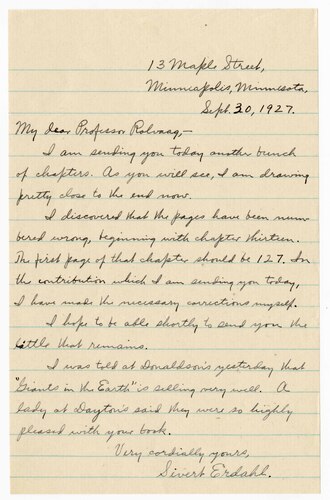 13 Maple Street,
Minneapolis, Minnesota,
Sept. 30, 1927.
My dear Professor Rolvaag,-
I am sending you today another bunch
of chapters. As you will see, I am drawing
pretty close to the end now.
I discovered that the pages have been num
bered wrong, beginning with chapter thirteen.
The first page of that chapter should be 127. In
the contribution which I am sending you today,
I have made the necessary corrections myself.
I hope to be able shortly to send you the
little that remains.
I was told at Donaldson's yesterday that
"Giants in the Earth" is selling very well. A
lady at Dayton's said they were so highly
pleased with your book.
Very cordially yours,
Sivert Erdahl.